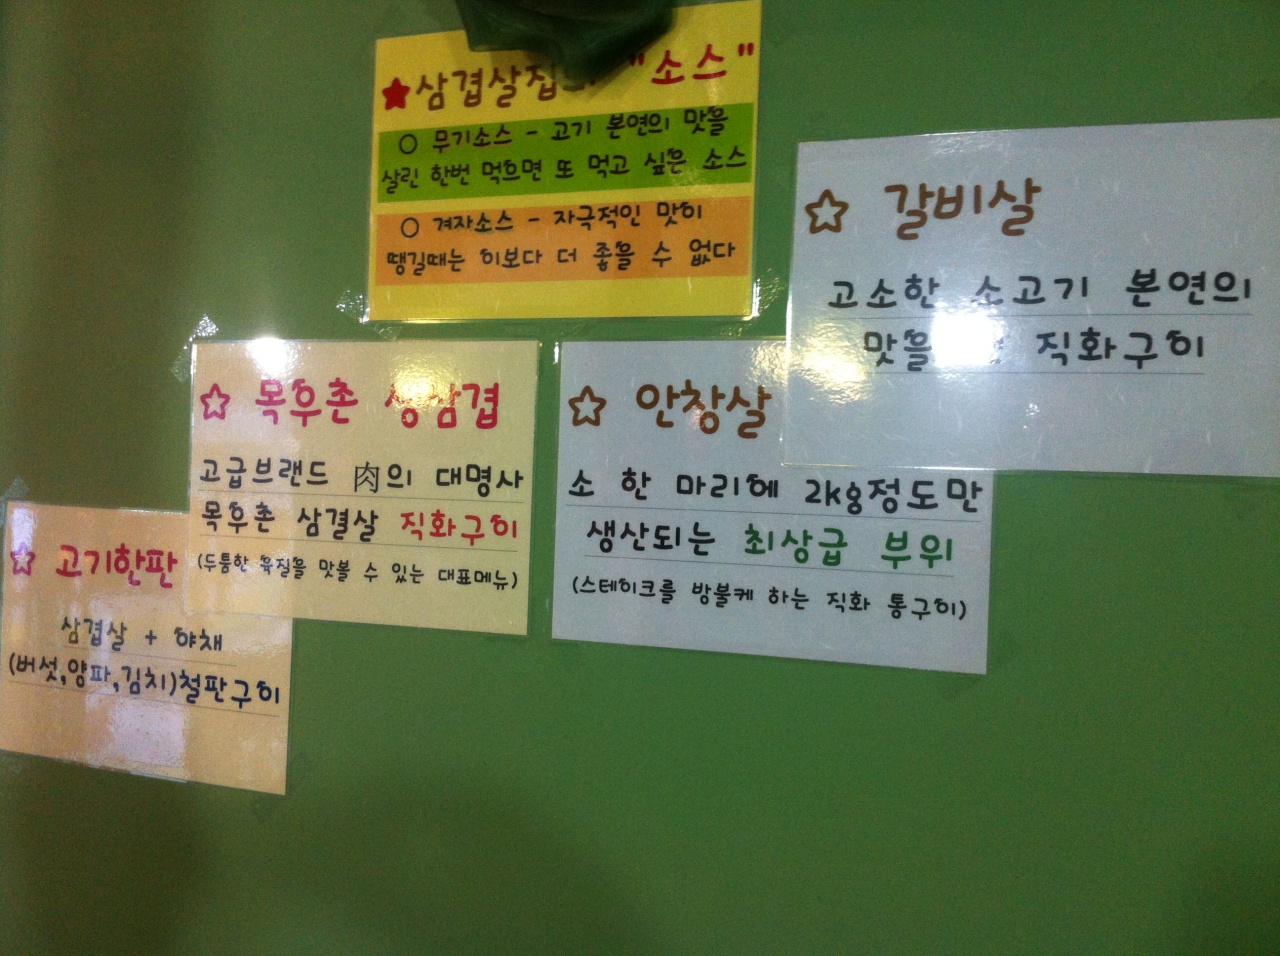 ★삼겹살집 "소스"
○ 무기소스 - 고기 본연의 맛을
살린 한번 먹으면 또 먹고 싶은 소스
○ 겨자소스 - 자극적인 맛이
땡길때는 이보다 더 좋을 수 없다
☆ 갈비살
고소한 소고기 본연의
맛을 직화구이
☆ 목우촌 생삼겹
고급브랜드 肉의 대명사
목우촌 삼결살 직화구이
(두툼한 육질을 맛볼 수 있는 대표메뉴)
☆ 안창살
소 한 마리에 2kg정도만
생산되는 최상급 부위
(스테이크를 방불케 하는 직화 통구이)
☆ 고기한판
삼겹살 + 야채
(버섯,양파,김치)철판구이